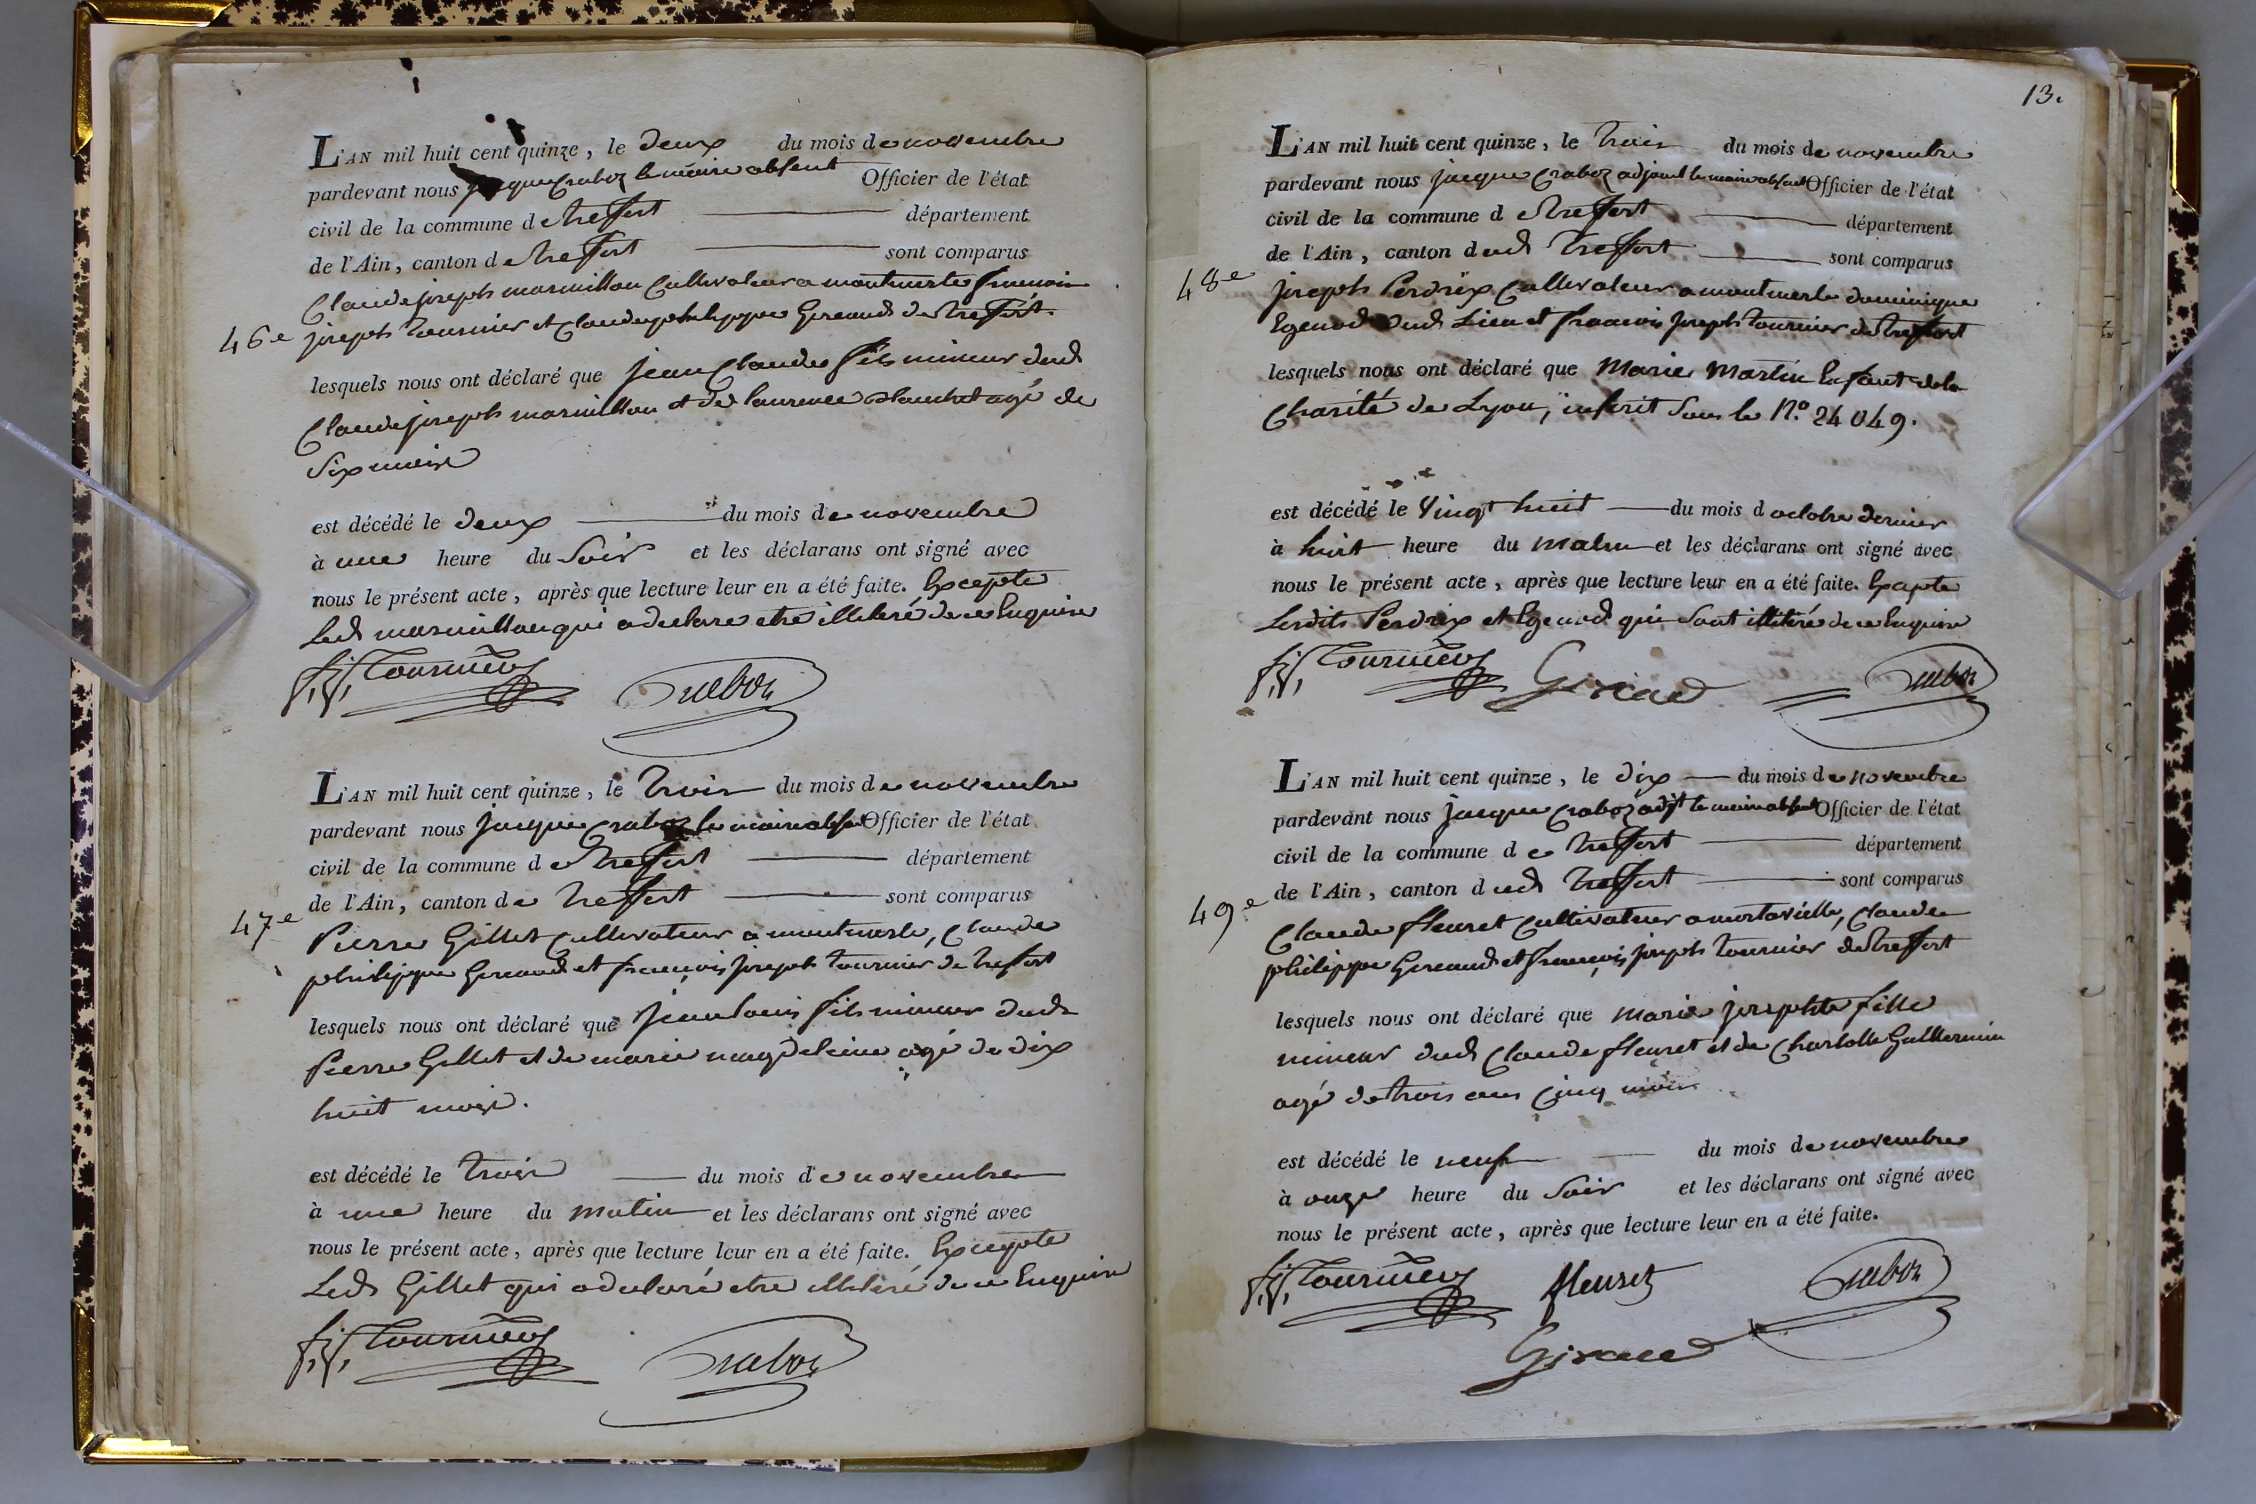 L'AN mil huit cent quinze, le deux du mois de novembre
pardevant nous jacque Craboz le maire absent Officier de l'état
civil de la commune de treffort département
de l'Ain, canton de treffort sont comparus
Claude joseph marmillon Cultivateur a montmerle francois
46e joseph tournier et Claude philippe Gireaud de treffort.
lesquels nous ont déclaré que jean Claude fils mineur dud
Claude joseph marmillon et de laurence blanchet agé de
Six mois
est décédé le deux du mois de novembre
à une heure du Soir et les déclarans ont signé avec
nous le présent acte, après que lecture leur en a été faite. Excepte
Led marmillon qui a declare etre illiteré de ce Enquis
f. j. Tournier Craboz
L'AN mil huit cent quinze, le trois du mois de novembre
pardevant nous jacque Craboz le maire absent Officier de l'état
civil de la commune de treffort département
de l'Ain, canton de treffort sont comparus
47e Pierre Gillet Cultivateur a montmerle, Claude
philippe Gireaud et francois joseph tournier de treffort
lesquels nous ont déclaré que jean louis fils mineur dud
Pierre Gillet et de marie magdeleine agé de dix
huit mois.
est décédé le trois du mois de novembre
à une heure du matin et les déclarans ont signé avec
nous le présent acte, après que lecture leur en a été faite. Excepte
Led Gillet qui a declaré etre illiteré de ce Enquis
f. j. Tournier Craboz
13.
L'AN mil huit cent quinze, le trois du mois de novembre
pardevant nous jacque Craboz adjoint le maire absent Officier de l'état
civil de la commune de treffort département
de l'Ain, canton dud treffort sont comparus
48e joseph Perdrix Cultivateur a montmerle dominique
Egenod dud Lieu et francois joseph tournier de treffort
lesquels nous ont déclaré que Marie Martin Enfant de la
Charité de Lyon, inscrit Sous le N.º 24049.
est décédé le Vingt huit du mois d octobre dernier
à huit heure du matin et les déclarans ont signé avec
nous le présent acte, après que lecture leur en a été faite. Excepte
Lesdits Perdrix et Egenod qui Sont illiteré de ce Enquis
f. j. Tournier Giraud Craboz
L'AN mil huit cent quinze, le dix du mois de novembre
pardevant nous jacque Craboz adjt le maire absent Officier de l'état
civil de la commune de treffort département
de l'Ain, canton dud treffort sont comparus
49e Claude fleuret Cultivateur a montaville, Claude
philippe Gireaud et francois joseph tournier de treffort
lesquels nous ont déclaré que marie josephte fille
mineur dud Claude fleuret et de Charlotte Guillermin
agé de trois ans Cinq mois
est décédé le neuf du mois de novembre
à onze heure du Soir et les déclarans ont signé avec
nous le présent acte, après que lecture leur en a été faite.
f. j. Tournier fleuret Craboz
Giraud